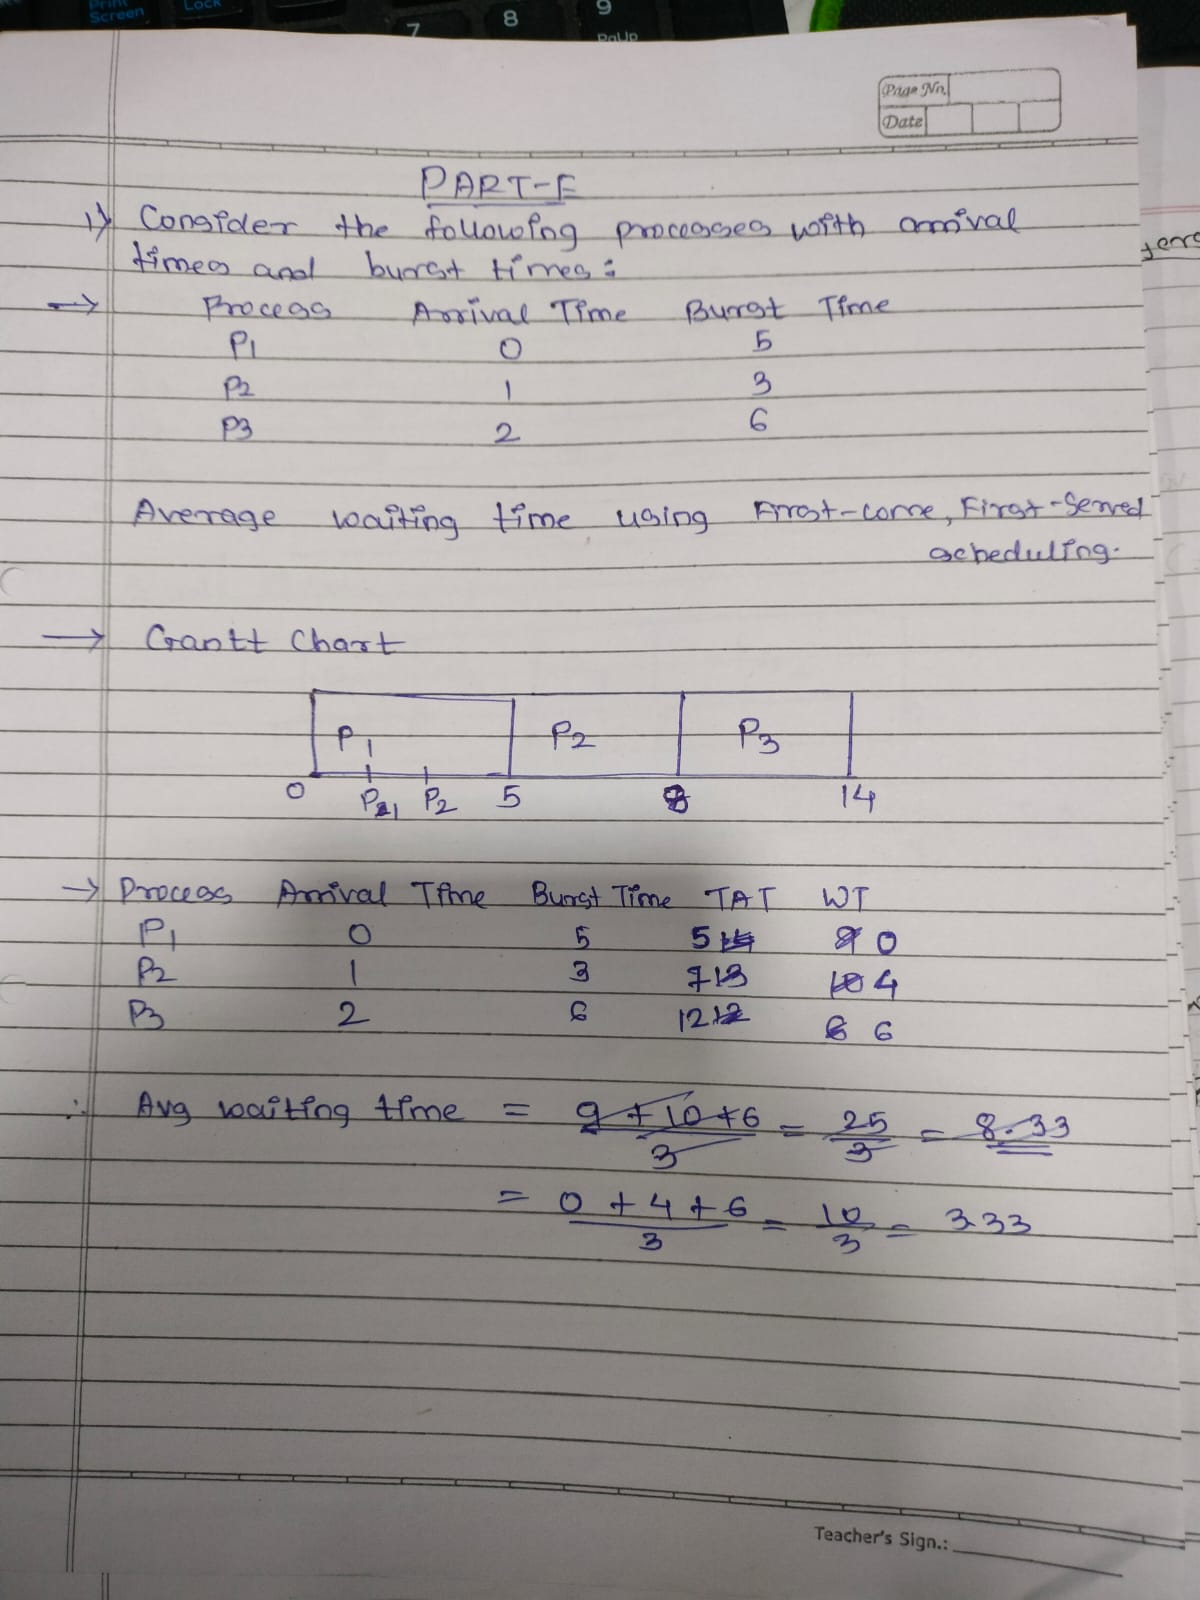 Print Screen
Lock
7
8
9
PgUp
Page No.
Date
PART-E
1) Consider the following processes with arrival
times and burst times:
→ Process Arrival Time Burst Time
P1 0 5
P2 1 3
P3 2 6
Average waiting time using First-come, First-Served
scheduling.
→ Gantt Chart
P1 P2 P3
0 P1 P2 5 8 14
→ Process Arrival Time Burst Time TAT WT
P1 0 5 5 14 9 0
P2 1 3 7 13 10 4
P3 2 6 12 12 6 6
∴ Avg waiting time = 9+10+6/3 = 25/3 = 8.33
= 0+4+6/3 = 10/3 = 3.33
Teacher's Sign.: